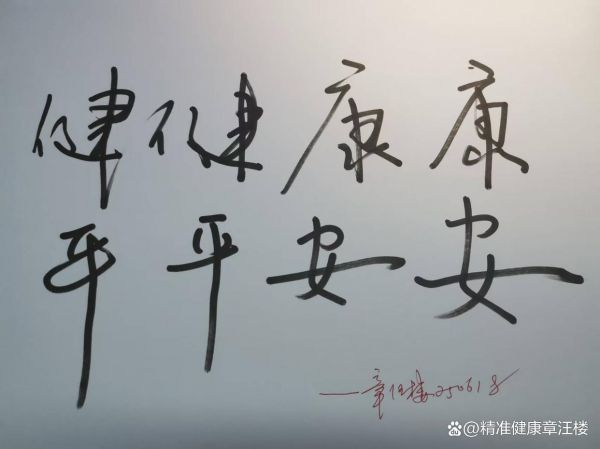 健健康康
平平安安
一章汪楼250618
@精准健康章汪楼